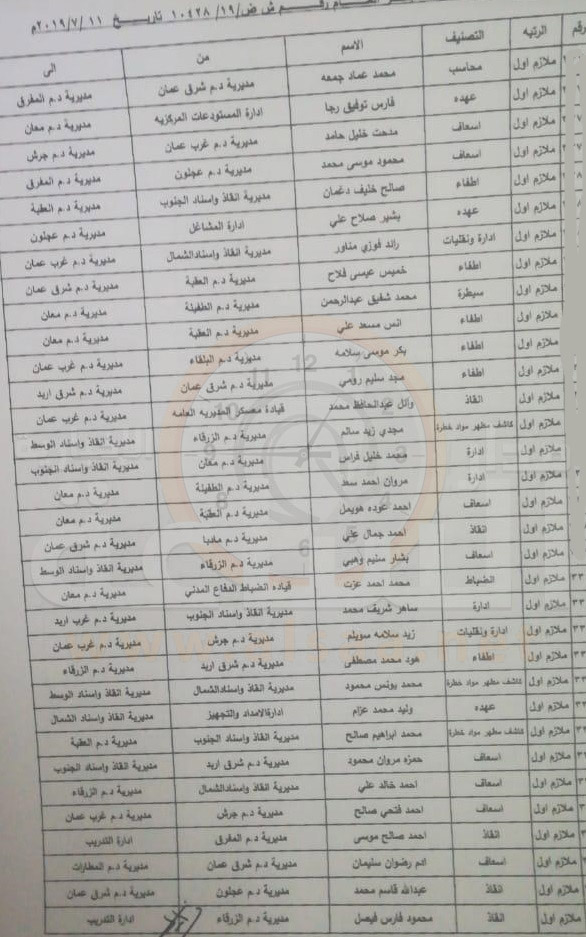 العام رقم ش ض/١٩/ ١٠٤٢٨ تاريخ ٢٠١٩/٧/١١م
رقم الرتبه التصنيف الاسم من الى
ملازم اول محاسب محمد عماد جمعه مديرية د.م شرق عمان مديرية د.م المفرق
ملازم اول عهده فارس توفيق رجا ادارة المستودعات المركزيه مديرية د.م معان
ملازم اول اسعاف مدحت خليل حامد مديرية د.م غرب عمان مديرية د.م جرش
ملازم اول اسعاف محمود موسى محمد مديرية د.م عجلون مديرية د.م المفرق
ملازم اول اطفاء صالح خليف دغمان مديرية انقاذ واسناد الجنوب مديرية د.م العقبة
ملازم اول عهده بشير صلاح علي ادارة المشاغل مديرية د.م عجلون
ملازم اول ادارة ونقليات رائد فوزي مناور مديرية انقاذ واسنادالشمال مديرية د.م غرب عمان
ملازم اول اطفاء خميس عيسى فلاح مديرية د.م العقبة مديرية د.م شرق عمان
ملازم اول سيطرة محمد شفيق عبدالرحمن مديرية د.م الطفيلة مديرية د.م معان
ملازم اول اطفاء انس مسعد علي مديرية د.م العقبة مديرية د.م معان
ملازم اول اطفاء بكر موسى سلامه مديرية د.م البلقاء مديرية د.م غرب عمان
ملازم اول اطفاء مجد سليم رومي مديرية د.م شرق عمان مديرية د.م شرق اربد
ملازم اول انقاذ وائل عبدالحافظ محمد قيادة معسكر المديريه العامه مديرية د.م غرب عمان
ملازم اول كاشف مطهر مواد خطرة مجدي زيد سالم مديرية د.م الزرقاء مديرية انقاذ واسناد الوسط
ملازم اول ادارة محمد خليل فراس مديرية د.م معان مديرية انقاذ واسناد الجنوب
ملازم اول ادارة مروان احمد سعد مديرية د.م الطفيلة مديرية د.م معان
ملازم اول اسعاف احمد عوده هويمل مديرية د.م العقبة مديرية د.م معان
ملازم اول انقاذ احمد جمال علي مديرية د.م مادبا مديرية د.م شرق عمان
ملازم اول اسعاف بشار سليم وهبي مديرية د.م الزرقاء مديرية انقاذ واسناد الوسط
٣٣ ملازم اول الضباط محمد احمد عزت قياده الضباط الدفاع المدني مديرية د.م معان
٣٣ ملازم اول ادارة ساهر شريف محمد مديرية انقاذ واسناد الجنوب مديرية د.م غرب اربد
٣٣ ملازم اول ادارة ونقليات زيد سلامه سويلم مديرية د.م جرش مديرية د.م غرب عمان
٣٣ ملازم اول اطفاء هود محمد مصطفى مديرية د.م شرق اربد مديرية د.م الزرقاء
ملازم اول كاشف مطهر مواد خطرة محمد يونس محمود مديرية انقاذ واسنادالشمال مديرية انقاذ واسناد الوسط
ملازم اول عهده وليد محمد عزام ادارةالامداد والتجهيز مديرية انقاذ واسناد الشمال
ملازم اول كاشف مطهر مواد خطرة محمد ابراهيم صالح مديرية انقاذ واسناد الجنوب مديرية د.م العقبة
ملازم اول اسعاف حمزه مروان محمود مديرية د.م شرق اربد مديرية انقاذ واسناد الجنوب
ملازم اول اسعاف احمد خالد علي مديرية انقاذ واسنادالشمال مديرية د.م الزرقاء
ملازم اول اسعاف احمد فتحي صالح مديرية د.م جرش مديرية د.م غرب عمان
ملازم اول انقاذ احمد صالح موسى مديرية د.م المفرق ادارة التدريب
ملازم اول اسعاف ادم رضوان سليمان مديرية د.م شرق عمان مديرية د.م المطارات
ملازم اول انقاذ عبدالله قاسم محمد مديرية د.م عجلون مديرية د.م شرق عمان
ملازم اول انقاذ محمود فارس فيصل مديرية د.م الزرقاء ادارة التدريب